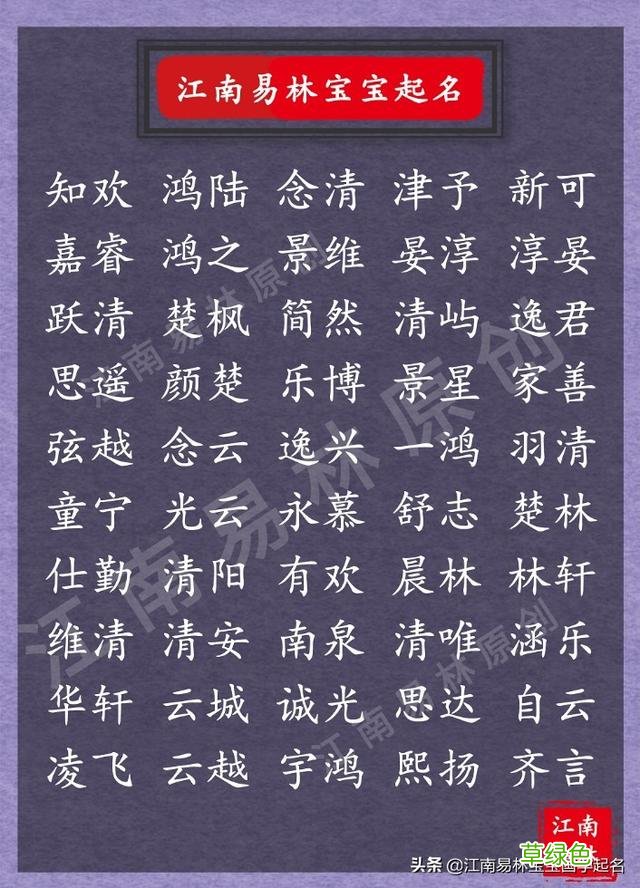 江南易林宝宝起名
知欢 鸿陆 念清 津予 新可
嘉睿 鸿之 景维 晏淳 淳晏
跃清 楚枫 简然 清屿 逸君
思遥 颜楚 乐博 景星 家善
弦越 念云 逸兴 一鸿 羽清
童宁 光云 永慕 舒志 楚林
仕勤 清阳 有欢 晨林 林轩
维清 清安 南泉 清唯 涵乐
华轩 云城 诚光 思达 自云
凌飞 云越 宇鸿 熙扬 齐言
江南易林原创
江南易林原创
江南易林原创
江南
草绿色
头条 @江南易林宝宝国学起名